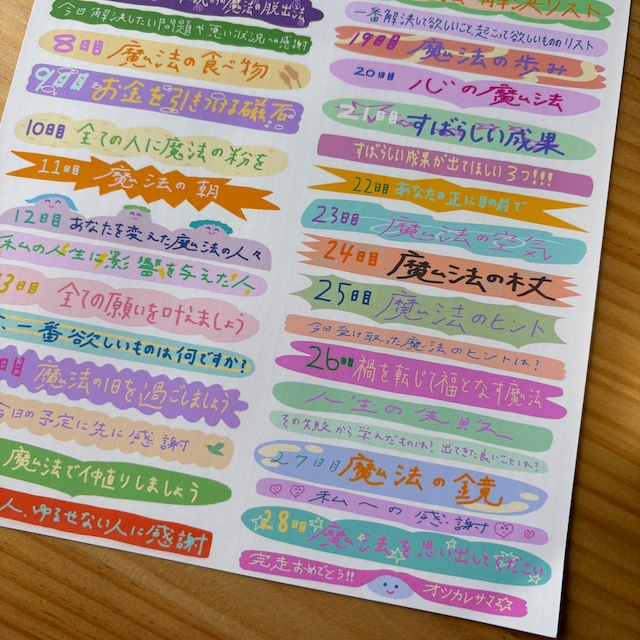 魔法の脱出法
今日解決したい問題や悪い状況への感謝
8日目 魔法の食べ物
9日目 お金を引きつける磁石
10日目 全ての人に魔法の粉を
11日目 魔法の朝
12日目 あなたを変えた魔法の人々
私の人生に影響を与えた人
13日目 全ての願いを叶えましょう
一番欲しいものは何ですか?
日目 魔法の1日を過ごましょう
今日の予定に先に感謝
魔法で仲直りしましょう
人、ゆるせない人に感謝
リスト
一番解決して欲しいこと、起こって欲しいもののリスト
19日目 魔法の歩み
20日目 心の魔法
21日目 すばらしい成果
すばらしい成果が出てほしい3つ!!!
22日目 あなたの正に目の前で
23日目 魔法の空気
24日目 魔法の杖
25日目 魔法のヒント
今日受け取った魔法のヒントは?
26日目 禍を転じて福となす魔法
人生の失敗
その失敗から学んだものは?出てきた良いことは?
27日目 魔法の鏡
私への感謝
28日目 魔法を思い出してください
完走おめでとう!!
オツカレサマ☆